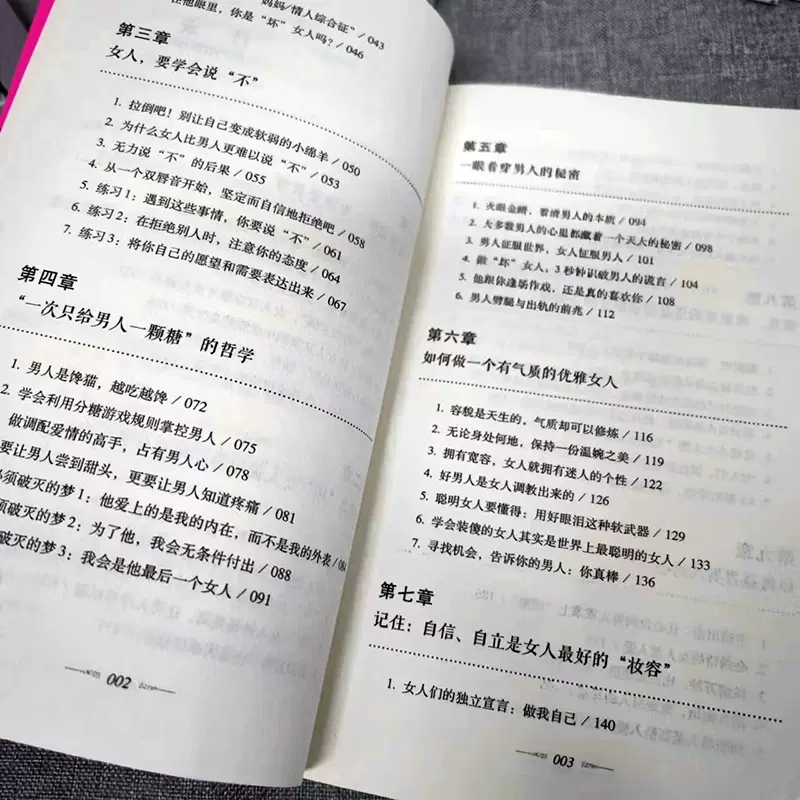 妈妈/情人综合征”/ 043
在他眼里，你是“坏”女人吗？/ 046
第三章
女人，要学会说“不”
1. 拉倒吧！别让自己变成软弱的小绵羊 / 050
2. 为什么女人比男人更难以说“不”/ 053
3. 无力说“不”的后果 / 055
4. 从一个双唇音开始，坚定而自信地拒绝吧 / 058
5. 练习1：遇到这些事情，你要说“不”/ 061
6. 练习2：在拒绝别人时，注意你的态度 / 064
7. 练习3：将你自己的愿望和需要表达出来 / 067
第四章
“一次只给男人一颗糖”的哲学
1. 男人是馋猫，越吃越馋 / 072
2. 学会利用分糖游戏规则掌控男人 / 075
做调配爱情的高手，占有男人心 / 078
要让男人尝到甜头，更要让男人知道疼痛 / 081
必须破灭的梦1：他爱上的是我的内在，而不是我的外表 /
须破灭的梦2：为了他，我会无条件付出 / 088
破灭的梦3：我会是他最后一个女人 / 091
002
第五章
一眼看穿男人的秘密
1. 火眼金睛，看清男人的本质 / 094
2. 大多数男人的心里都藏着一个天大的秘密 / 098
3. 男人征服世界，女人征服男人 / 101
4. 做“坏”女人，3秒钟识破男人的谎言 / 104
5. 他跟你逢场作戏，还是真的喜欢你 / 108
6. 男人劈腿与出轨的前兆 / 112
第六章
如何做一个有气质的优雅女人
1. 容貌是天生的，气质却可以修炼 / 116
2. 无论身处何地，保持一份温婉之美 / 119
3. 拥有宽容，女人就拥有迷人的个性 / 122
4. 好男人是女人调教出来的 / 126
5. 聪明女人要懂得：用好眼泪这种软武器 / 129
6. 学会装傻的女人其实是世界上最聪明的女人 / 133
7. 寻找机会，告诉你的男人：你真棒 / 136
第七章
记住：自信、自立是女人最好的“妆容”
1. 女人们的独立宣言：做我自己 / 140
003